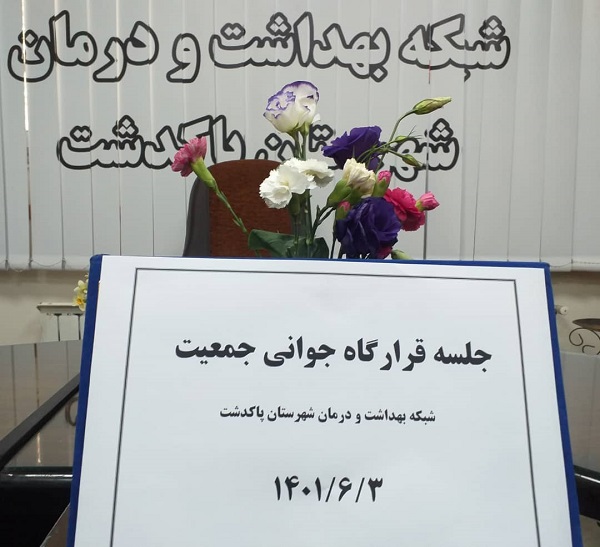 شبکه بهداشت و درمان
شهرستان پاکدشت
جلسه قرارگاه جوانی جمعیت
شبکه بهداشت و درمان شهرستان پاکدشت
۱۴۰۱/۶/۳